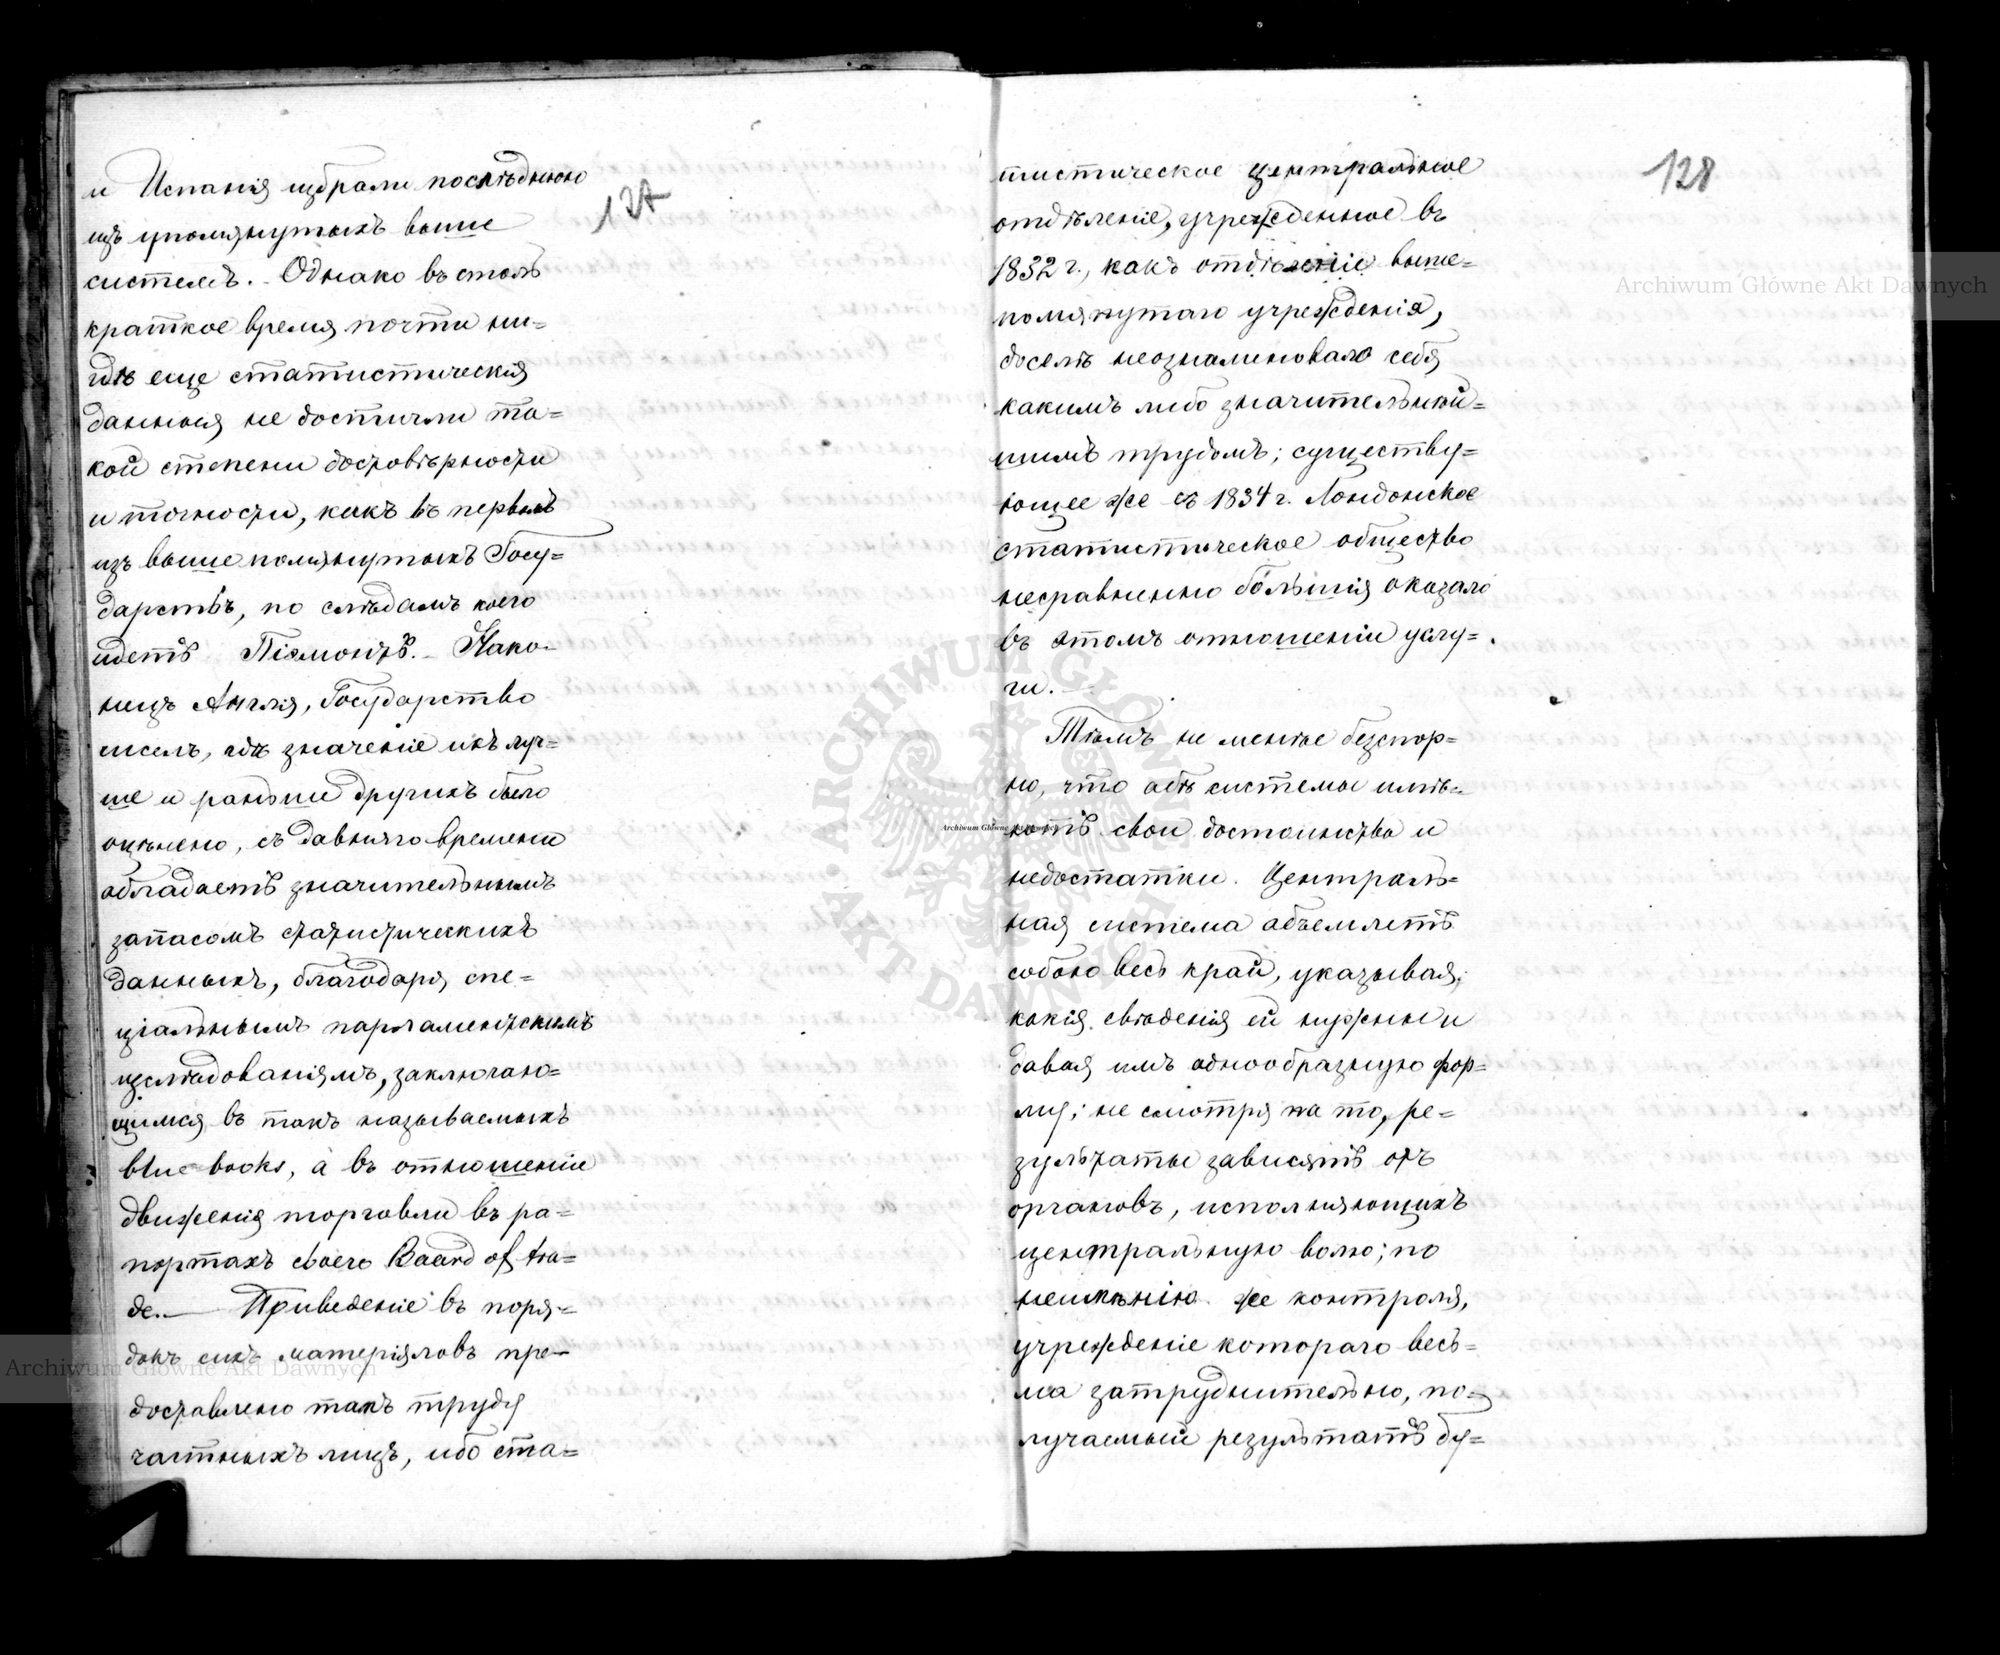 127
и Испанія избрали послѣднюю
изъ упомянутыхъ выше
системъ. - Однако въ столь
краткое время почти ни=
гдѣ еще статистическія
данныя не достигли та=
кой степени достовѣрности
и точности, какъ въ первыхъ
изъ выше помянутыхъ Госу=
дарствъ, по слѣдамъ коего
идетъ Піэмонтъ. - Нако-
нецъ Англія, Государство
чиселъ, гдѣ значеніе ихъ луч=
ше и раньше другихъ было
оцѣнено, съ давняго времени
обладаетъ значительнымъ
запасомъ статистическихъ
данныхъ, благодаря спе=
ціальнымъ парламентскимъ
изслѣдованіямъ, заключаю=
щимся въ такъ называемыхъ
blue books, а въ отношеніи
движенія торговли въ ра=
портахъ своего Board of tra=
de. — Приведеніе въ поря=
докъ сихъ матеріяловъ пре-
доставлено такъ труду
частныхъ лицъ, ибо ста=
128
тистическое центральное
отдѣленіе, учрежденное въ
1832 г., какъ отдѣленіе выше=
помянутаго учрежденія,
доселѣ неознаменовало себя
какимъ либо значительнѣй=
шимъ трудомъ; существу=
ющее же съ 1834 г. Лондонское
статистическое общество
несравненно бо́льшія оказало
въ этомъ отношеніи услу=
ги. —
Тѣмъ не менѣе безспор=
но, что обѣ системы имѣ=
ютъ свои достоинства и
недостатки. Централь=
ная система объемлетъ
собою весь край, указывая,
какія свѣденія ей нужны и
давая имъ однообразную фор=
му; не смотря на то, ре=
зультаты зависятъ отъ
органовъ, исполняющихъ
центральную волю; по
неимѣнію же контроля,
учрежденіе котораго весь=
ма затруднительно, по=
лучаемый результатъ бу=
Archiwum Główne Akt Dawnych
Archiwum Główne Akt Dawnych
Archiwum Główne Akt Dawnych
ARCHIWUM GŁÓWNE AKT DAWNYCH